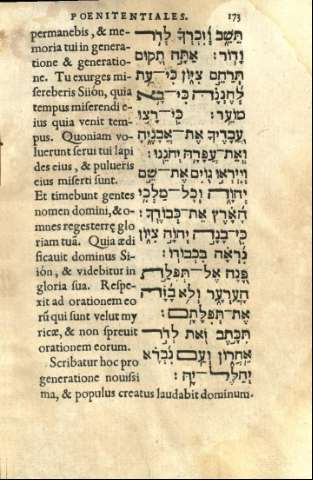 POENITENTIALES. 173
permanebis, & me-
moria tui in genera-
tione & generatio-
ne. Tu exurges mi-
sereberis Siiōn, quia
tempus miserendi e-
ius quia venit tem-
pus. Quoniam vo-
luerunt serui tui lapi
des eius, & pulueris
eius miserti sunt.
Et timebunt gentes
nomen domini, & o-
mnes regesterrę glo
riam tuā. Quia ædi
ficauit dominus Si-
ión, & videbitur in
gloria sua. Respe-
xit ad orationem eo
rū qui sunt velut my
ricæ, & non spreuit
orationem eorum.
Scribatur hoc pro
generatione nouissi
ma, & populus creatus laudabit dominum.
תֵּשֵׁב וְזִכְרְךָ לְדֹר
וָדֹר׃ אַתָּה תָקוּם
תְּרַחֵם צִיּוֹן כִּי־עֵת
לְחֶנְנָהּ כִּי־בָא
מוֹעֵד׃ כִּי־רָצוּ
עֲבָדֶיךָ אֶת־אֲבָנֶיהָ
וְאֶת־עֲפָרָהּ יְחֹנֵנוּ׃
וְיִירְאוּ גוֹיִם אֶת־שֵׁם
יְהוָה וְכָל־מַלְכֵי
הָאָרֶץ אֶת־כְּבוֹדֶךָ׃
כִּי־בָנָה יְהוָה צִיּוֹן
נִרְאָה בִּכְבוֹדוֹ׃
פָּנָה אֶל־תְּפִלַּת
הָעַרְעָר וְלֹא־בָזָה
אֶת־תְּפִלָּתָם׃
תִּכָּתֶב זֹאת לְדֹר
אַחֲרוֹן וְעַם נִבְרָא
יְהַלֶּל־יָהּ׃